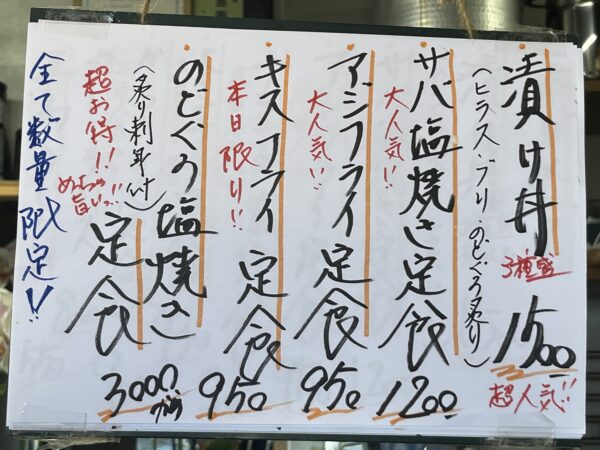 漬け丼
(ヒラス・ブリ・のどぐろ炙り)
3種盛
1500
超人気!!
サバ塩焼き定食
大人気!!
1200
アジフライ定食
大人気!!
950
キスフライ定食
本日限り!!
950
のどぐろ塩焼き
(炙り刺身付)
定食
超お得!!
めっちゃ旨いっ!!
3000
全て数量限定!!